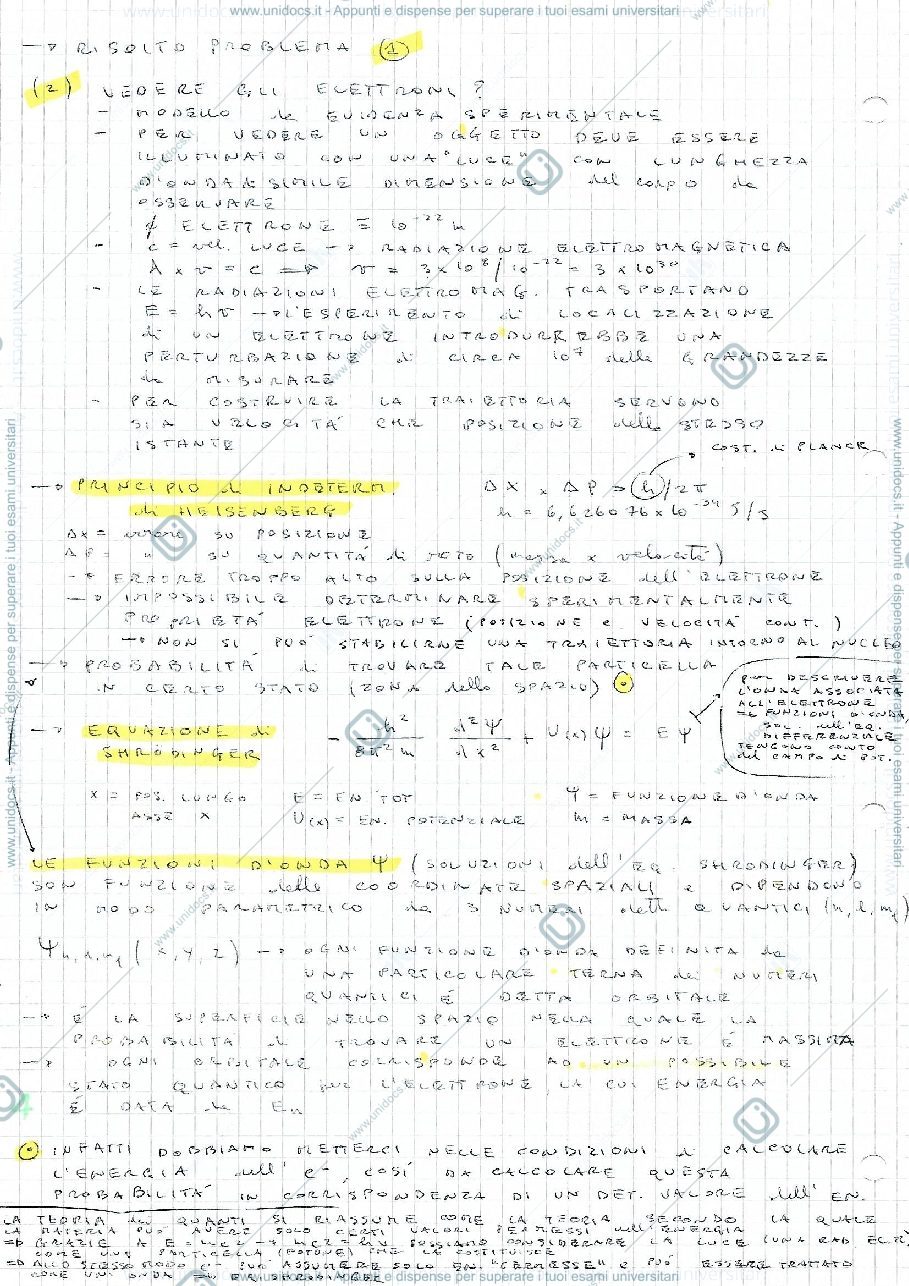 www.unidocs.it - Appunti e dispense per superare i tuoi esami universitari
→ RISOLTO PROBLEMA (1)
(2) VEDERE GLI ELETTRONI?
- MODELLO da EVIDENZA SPERIMENTALE
- PER VEDERE UN OGGETTO DEVE ESSERE
ILLUMINATO CON UNA "LUCE" CON LUNGHEZZA
D'ONDA di SIMILE DIMENSIONE del corpo da
OSSERVARE
ELETTRONE = 10⁻²² m
- c = vel. LUCE → RADIAZIONE ELETTROMAGNETICA
λ x ν = c => ν = 3 x 10⁸ / 10⁻²² = 3 x 10³⁰
- LE RADIAZIONI ELETTROMAG. TRASPORTANO
E = hν → L'ESPERIMENTO di LOCALIZZAZIONE
di UN ELETTRONE INTRODURREBBE UNA
PERTURBAZIONE di CIRCA 10⁷ delle GRANDEZZE
da MISURARE
- PER COSTRUIRE LA TRAIETTORIA SERVONO
SIA VELOCITÀ CHE POSIZIONE dello STESSO
ISTANTE
→ PRINCIPIO di INDETERM. ΔX x ΔP => h/2π → COST. di PLANCK
di HEISENBERG h = 6,626076 x 10⁻³⁴ J/s
Δx = errore SU POSIZIONE
ΔP = " SU QUANTITÁ di MOTO (massa x velocità)
→ ERRORE TROPPO ALTO SULLA POSIZIONE dell'ELETTRONE
→ IMPOSSIBILE DETERMINARE SPERIMENTALMENTE
PROPRIETÁ ELETTRONE (POSIZIONE e VELOCITÁ CONT.)
→ NON SI PUÓ STABILIRNE UNA TRAIETTORIA INTORNO AL NUCLEO
→ PROBABILITÁ di TROVARE TALE PARTICELLA
IN CERTO STATO (ZONA dello SPAZIO)
per DESCRIVERE
L'ONDA ASSOCIATA
ALL'ELETTRONE
LE FUNZIONI D'ONDA,
SOL. dell'EQ.
DIFFERENZIALE
TENGONO CONTO
del CAMPO di POT.
→ EQUAZIONE di
SHRÖDINGER
- h²/8π²m d²Ψ/dx² + U(x)Ψ = EΨ
X = POS. LUNGO E = EN TOT Ψ = FUNZIONE D'ONDA
ASSE X U(x) = EN. POTENZIALE m = MASSA
LE FUNZIONI D'ONDA Ψ (SOLUZIONI dell'EQ. SHRODINGER)
SON FUNZIONE delle COORDINATE SPAZIALI e DIPENDONO
IN MODO PARAMETRICO da 3 NUMERI detti QUANTICI (n, l, ml)
Ψn,l,ml (X,Y,Z) → OGNI FUNZIONE D'ONDA DEFINITA da
UNA PARTICOLARE TERNA dei NUMERI
QUANTICI É DETTA ORBITALE
→ É LA SUPERFICIE NELLO SPAZIO NELLA QUALE LA
PROBABILITÁ di TROVARE UN ELETTRONE É MASSIMA
→ OGNI ORBITALE CORRISPONDE AD UN POSSIBILE
STATO QUANTICO per L'ELETTRONE LA CUI ENERGIA
É DATA da En
INFATTI DOBBIAMO METTERCI NELLE CONDIZIONI di CALCOLARE
L'ENERGIA dell' e⁻ COSÍ DA CALCOLARE QUESTA
PROBABILITÁ IN CORRISPONDENZA DI UN DET. VALORE dell'EN.
LA TEORIA dei QUANTI SI RIASSUME COME LA TEORIA SECONDO LA QUALE
LA MATERIA PUÓ AVERE SOLO CERTI VALORI PERMESSI dell'ENERGIA
=> GRAZIE A POSSIAMO CONSIDERARE LA LUCE (UNA RAD EL.)
COME UNA PARTICELLA (FOTONE) CHE LA COSTITUISCE
=> ALLO STESSO MODO e⁻ PUÓ ASSUMERE SOLO EN. "PERMESSE" e PUÓ ESSERE TRATTATO
COME UN'ONDA => EQ. SHRODINGER